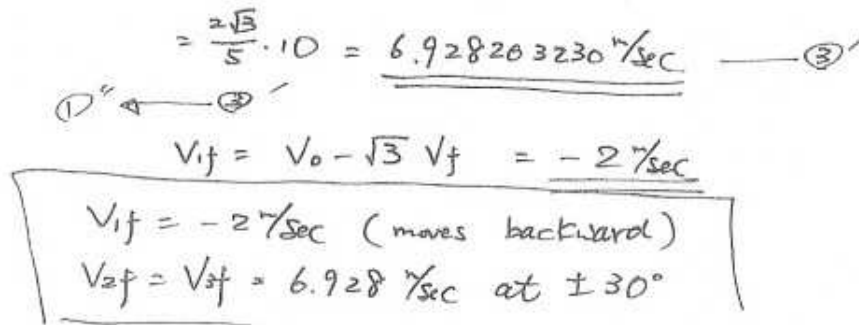 = 2√3/5 · 10 = 6.928203230 m/sec —— ③'
①" ← ③'
V1f = V0 - √3 Vf = - 2 m/sec
V1f = - 2 m/sec (moves backward)
V2f = V3f = 6.928 m/sec at ± 30°